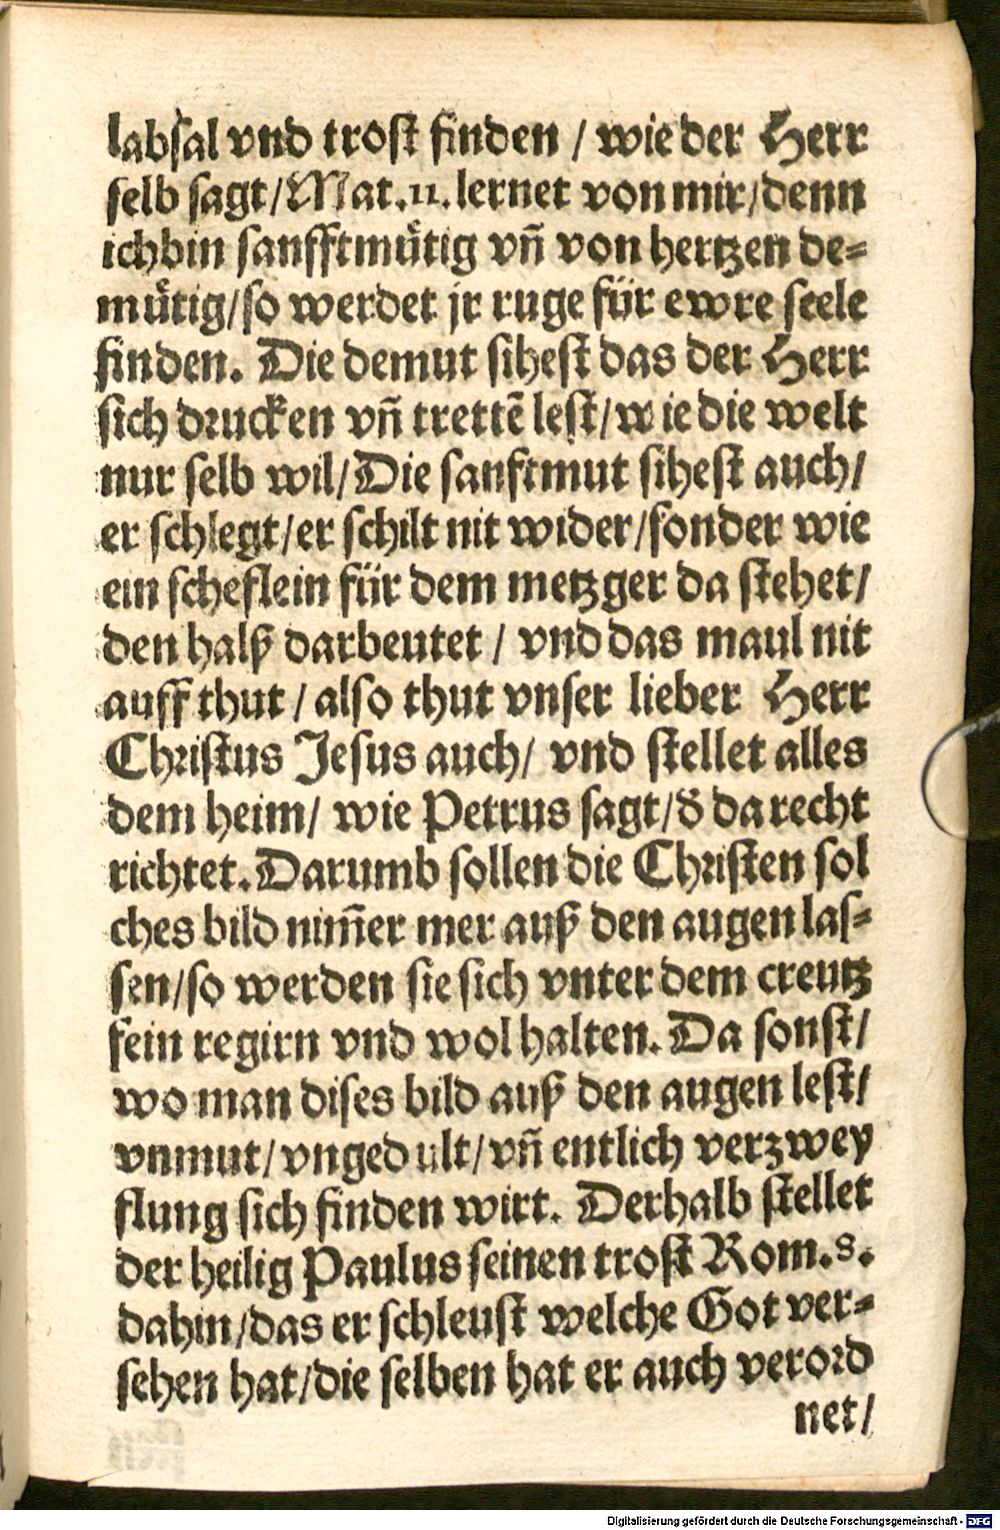 labsal vnd trost finden / wie der Herr
selb sagt/Mat.11.lernet von mir/denn
ich bin sanfftmuͤtig vñ von hertzen de⸗
muͤtig/so werdet jr ruge für ewre seele
finden. Die demut sihest das der Herr
sich drucken vñ trettẽ lest/wie die welt
nur selb wil/Die sanftmut sihest auch/
er schlegt/er schilt nit wider/sonder wie
ein scheflein für dem metzger da stehet/
den halß darbeutet / vnd das maul nit
auff thut / also thut vnser lieber Herr
Christus Jesus auch/ vnd stellet alles
dem heim/ wie Petrus sagt/d̕ da recht
richtet. Darumb sollen die Christen sol
ches bild nim̃er mer auß den augen las⸗
sen/so werden sie sich vnter dem creutz
fein regirn vnd wol halten. Da sonst/
wo man dises bild auß den augen lest/
vnmut/vngedult/vñ entlich verzwey
flung sich finden wirt. Derhalb stellet
der heilig Paulus seinen trost Rom.8.
dahin/das er schleust welche Got ver⸗
sehen hat/die selben hat er auch verord
net/
Digitalisierung gefördert durch die Deutsche Forschungsgemeinschaft - DFG